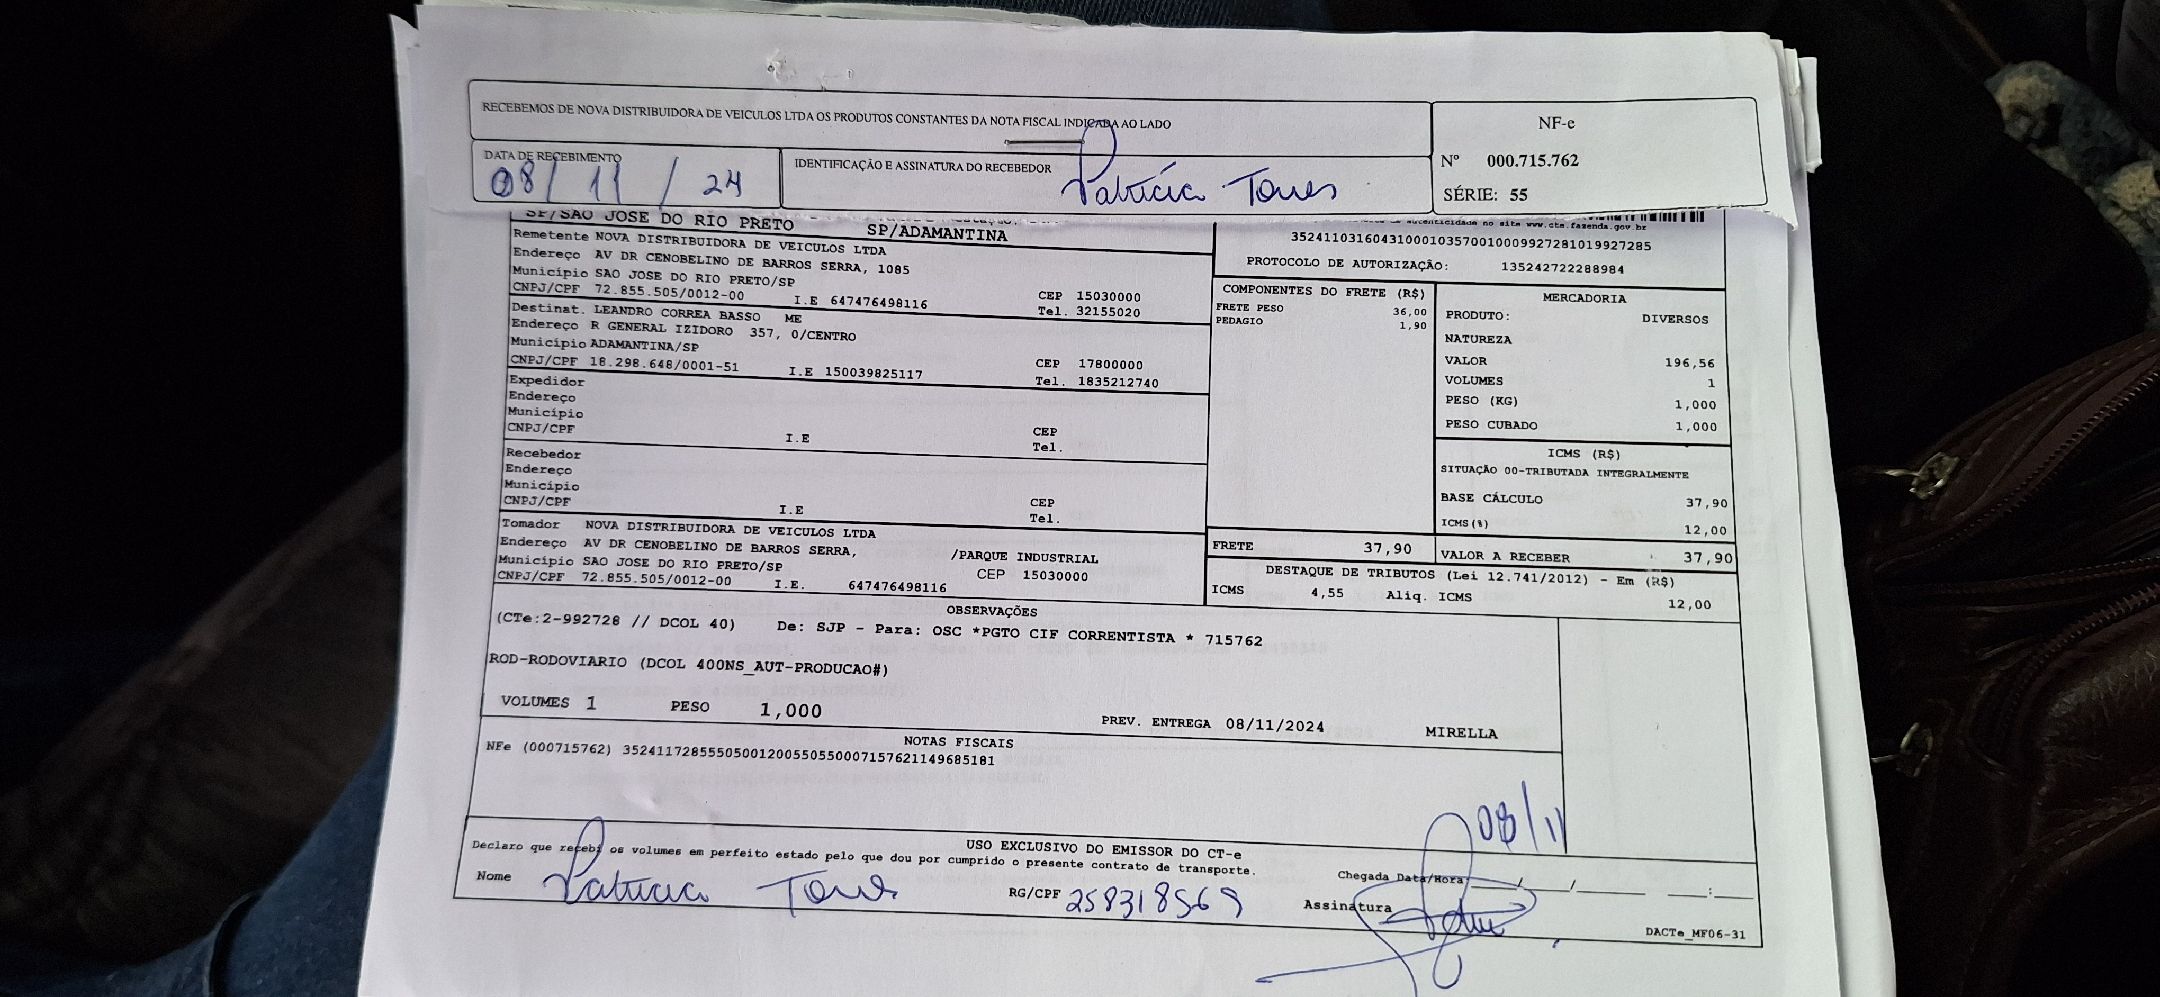 RECEBEMOS DE NOVA DISTRIBUIDORA DE VEICULOS LTDA OS PRODUTOS CONSTANTES DA NOTA FISCAL INDICADA AO LADO
NF-e
Nº 000.715.762
SÉRIE: 55
DATA DE RECEBIMENTO
08/11/24
IDENTIFICAÇÃO E ASSINATURA DO RECEBEDOR
Patricia Torres
SP/SAO JOSE DO RIO PRETO SP/ADAMANTINA
autenticidade no site www.cte.fazenda.gov.br
35241103160431000103570010009927281019927285
PROTOCOLO DE AUTORIZAÇÃO: 135242722288984
Remetente NOVA DISTRIBUIDORA DE VEICULOS LTDA
Endereço AV DR CENOBELINO DE BARROS SERRA, 1085
Município SAO JOSE DO RIO PRETO/SP CEP 15030000
CNPJ/CPF 72.855.505/0012-00 I.E 647476498116 Tel. 32155020
Destinat. LEANDRO CORREA BASSO ME
Endereço R GENERAL IZIDORO 357, 0/CENTRO
Município ADAMANTINA/SP CEP 17800000
CNPJ/CPF 18.298.648/0001-51 I.E 150039825117 Tel. 1835212740
Expedidor
Endereço
Município CEP
CNPJ/CPF I.E Tel.
Recebedor
Endereço
Município CEP
CNPJ/CPF I.E Tel.
Tomador NOVA DISTRIBUIDORA DE VEICULOS LTDA
Endereço AV DR CENOBELINO DE BARROS SERRA, /PARQUE INDUSTRIAL
Município SAO JOSE DO RIO PRETO/SP CEP 15030000
CNPJ/CPF 72.855.505/0012-00 I.E. 647476498116
COMPONENTES DO FRETE (R$)
FRETE PESO 36,00
PEDAGIO 1,90
MERCADORIA
PRODUTO: DIVERSOS
NATUREZA
VALOR 196,56
VOLUMES 1
PESO (KG) 1,000
PESO CUBADO 1,000
ICMS (R$)
SITUAÇÃO 00-TRIBUTADA INTEGRALMENTE
BASE CÁLCULO 37,90
ICMS(%) 12,00
FRETE 37,90 VALOR A RECEBER 37,90
DESTAQUE DE TRIBUTOS (Lei 12.741/2012) - Em (R$)
ICMS 4,55 Aliq. ICMS 12,00
OBSERVAÇÕES
(CTe:2-992728 // DCOL 40) De: SJP - Para: OSC *PGTO CIF CORRENTISTA * 715762
ROD-RODOVIARIO (DCOL 400NS_AUT-PRODUCAO#)
VOLUMES 1 PESO 1,000 PREV. ENTREGA 08/11/2024 MIRELLA
NOTAS FISCAIS
NFe (000715762) 35241172855505001200550550007157621149685181
08/11
USO EXCLUSIVO DO EMISSOR DO CT-e
Declaro que recebi os volumes em perfeito estado pelo que dou por cumprido o presente contrato de transporte.
Chegada Data/Hora ___/___/____ ___:___
Nome Patricia Torres RG/CPF 258318569 Assinatura
DACTe_MF06-31